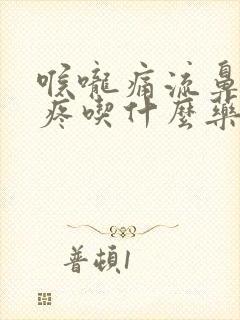 喉嚨痛流鼻
疼喫什麼藥
普頓1